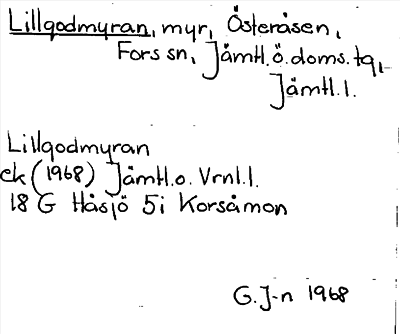 Lillgodmyran, myr, Österåsen,
Fors sn, Jämtl. ö. doms. tg,
Jämtl. l.
Lillgodmyran
ek (1968) Jämtl. o. Vrnl. l.
18 G Håsjö 5i Korsåmon
G. J-n 1968